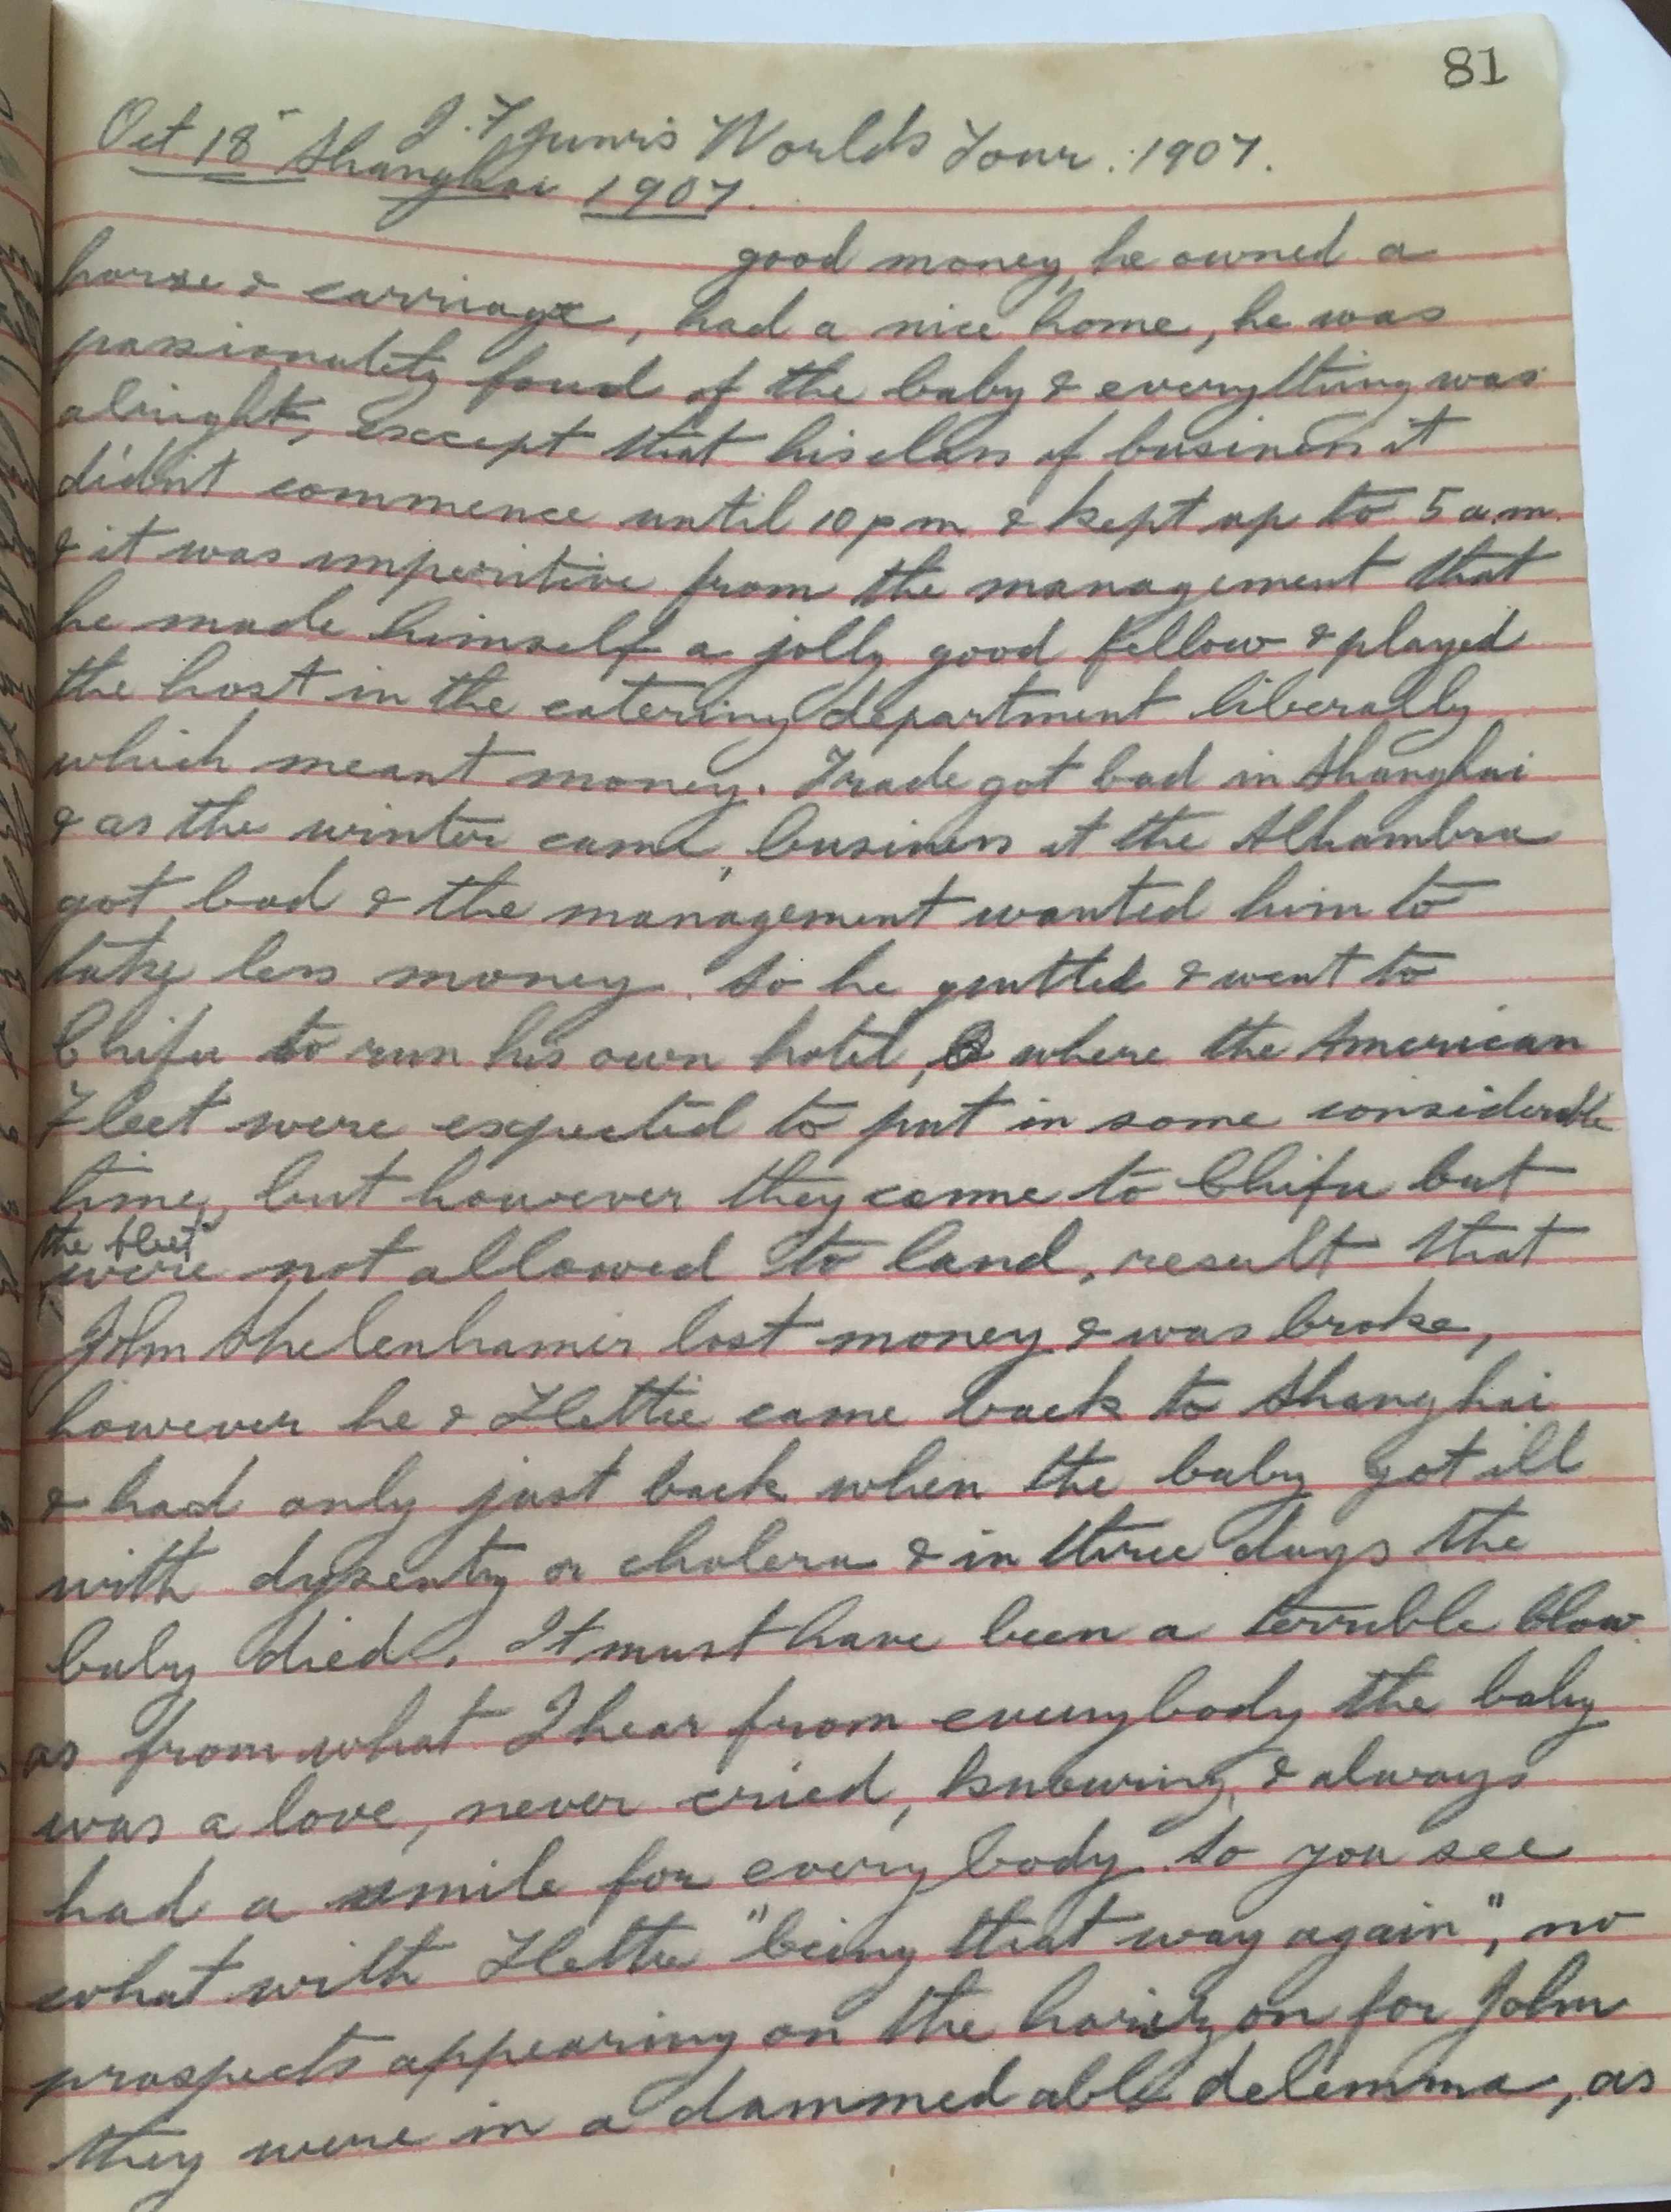 81
Oct 18 J. F. Junr's World's Tour. 1907.
Shanghai 1907.
good money, he owned a
horse & carriage, had a nice home, he was
passionately foud of the baby & everything was
alright, except that his class of business it
did'nt commence until 10 pm & kept up to 5 a.m.
& it was imperitive from the management that
he made himself a jolly good fellow & played
the host in the catering department liberally
which meant money. Trade got bad in Shanghai
& as the winter came, business at the Alhambra
got bad & the management wanted him to
take less money. So he quitted & went to
Chifu to run his own hotel, where the American
Fleet were expected to put in some considerable
time, but however they came to Chifu but
the fleet
were not allowed to land, result that
John Shelenhamer lost money & was broke,
however he & Hettie came back to Shanghai
& had only just back when the baby got ill
with dysentry or cholera & in three days the
baby died. It must have been a terrible blow
as from what I hear from everybody the baby
was a love, never cried, knowing, & always
had a smile for everybody. So you see
what with Hettie "being that way again", no
prospects appearing on the horizon for John
they were in a dammed able delemma, as